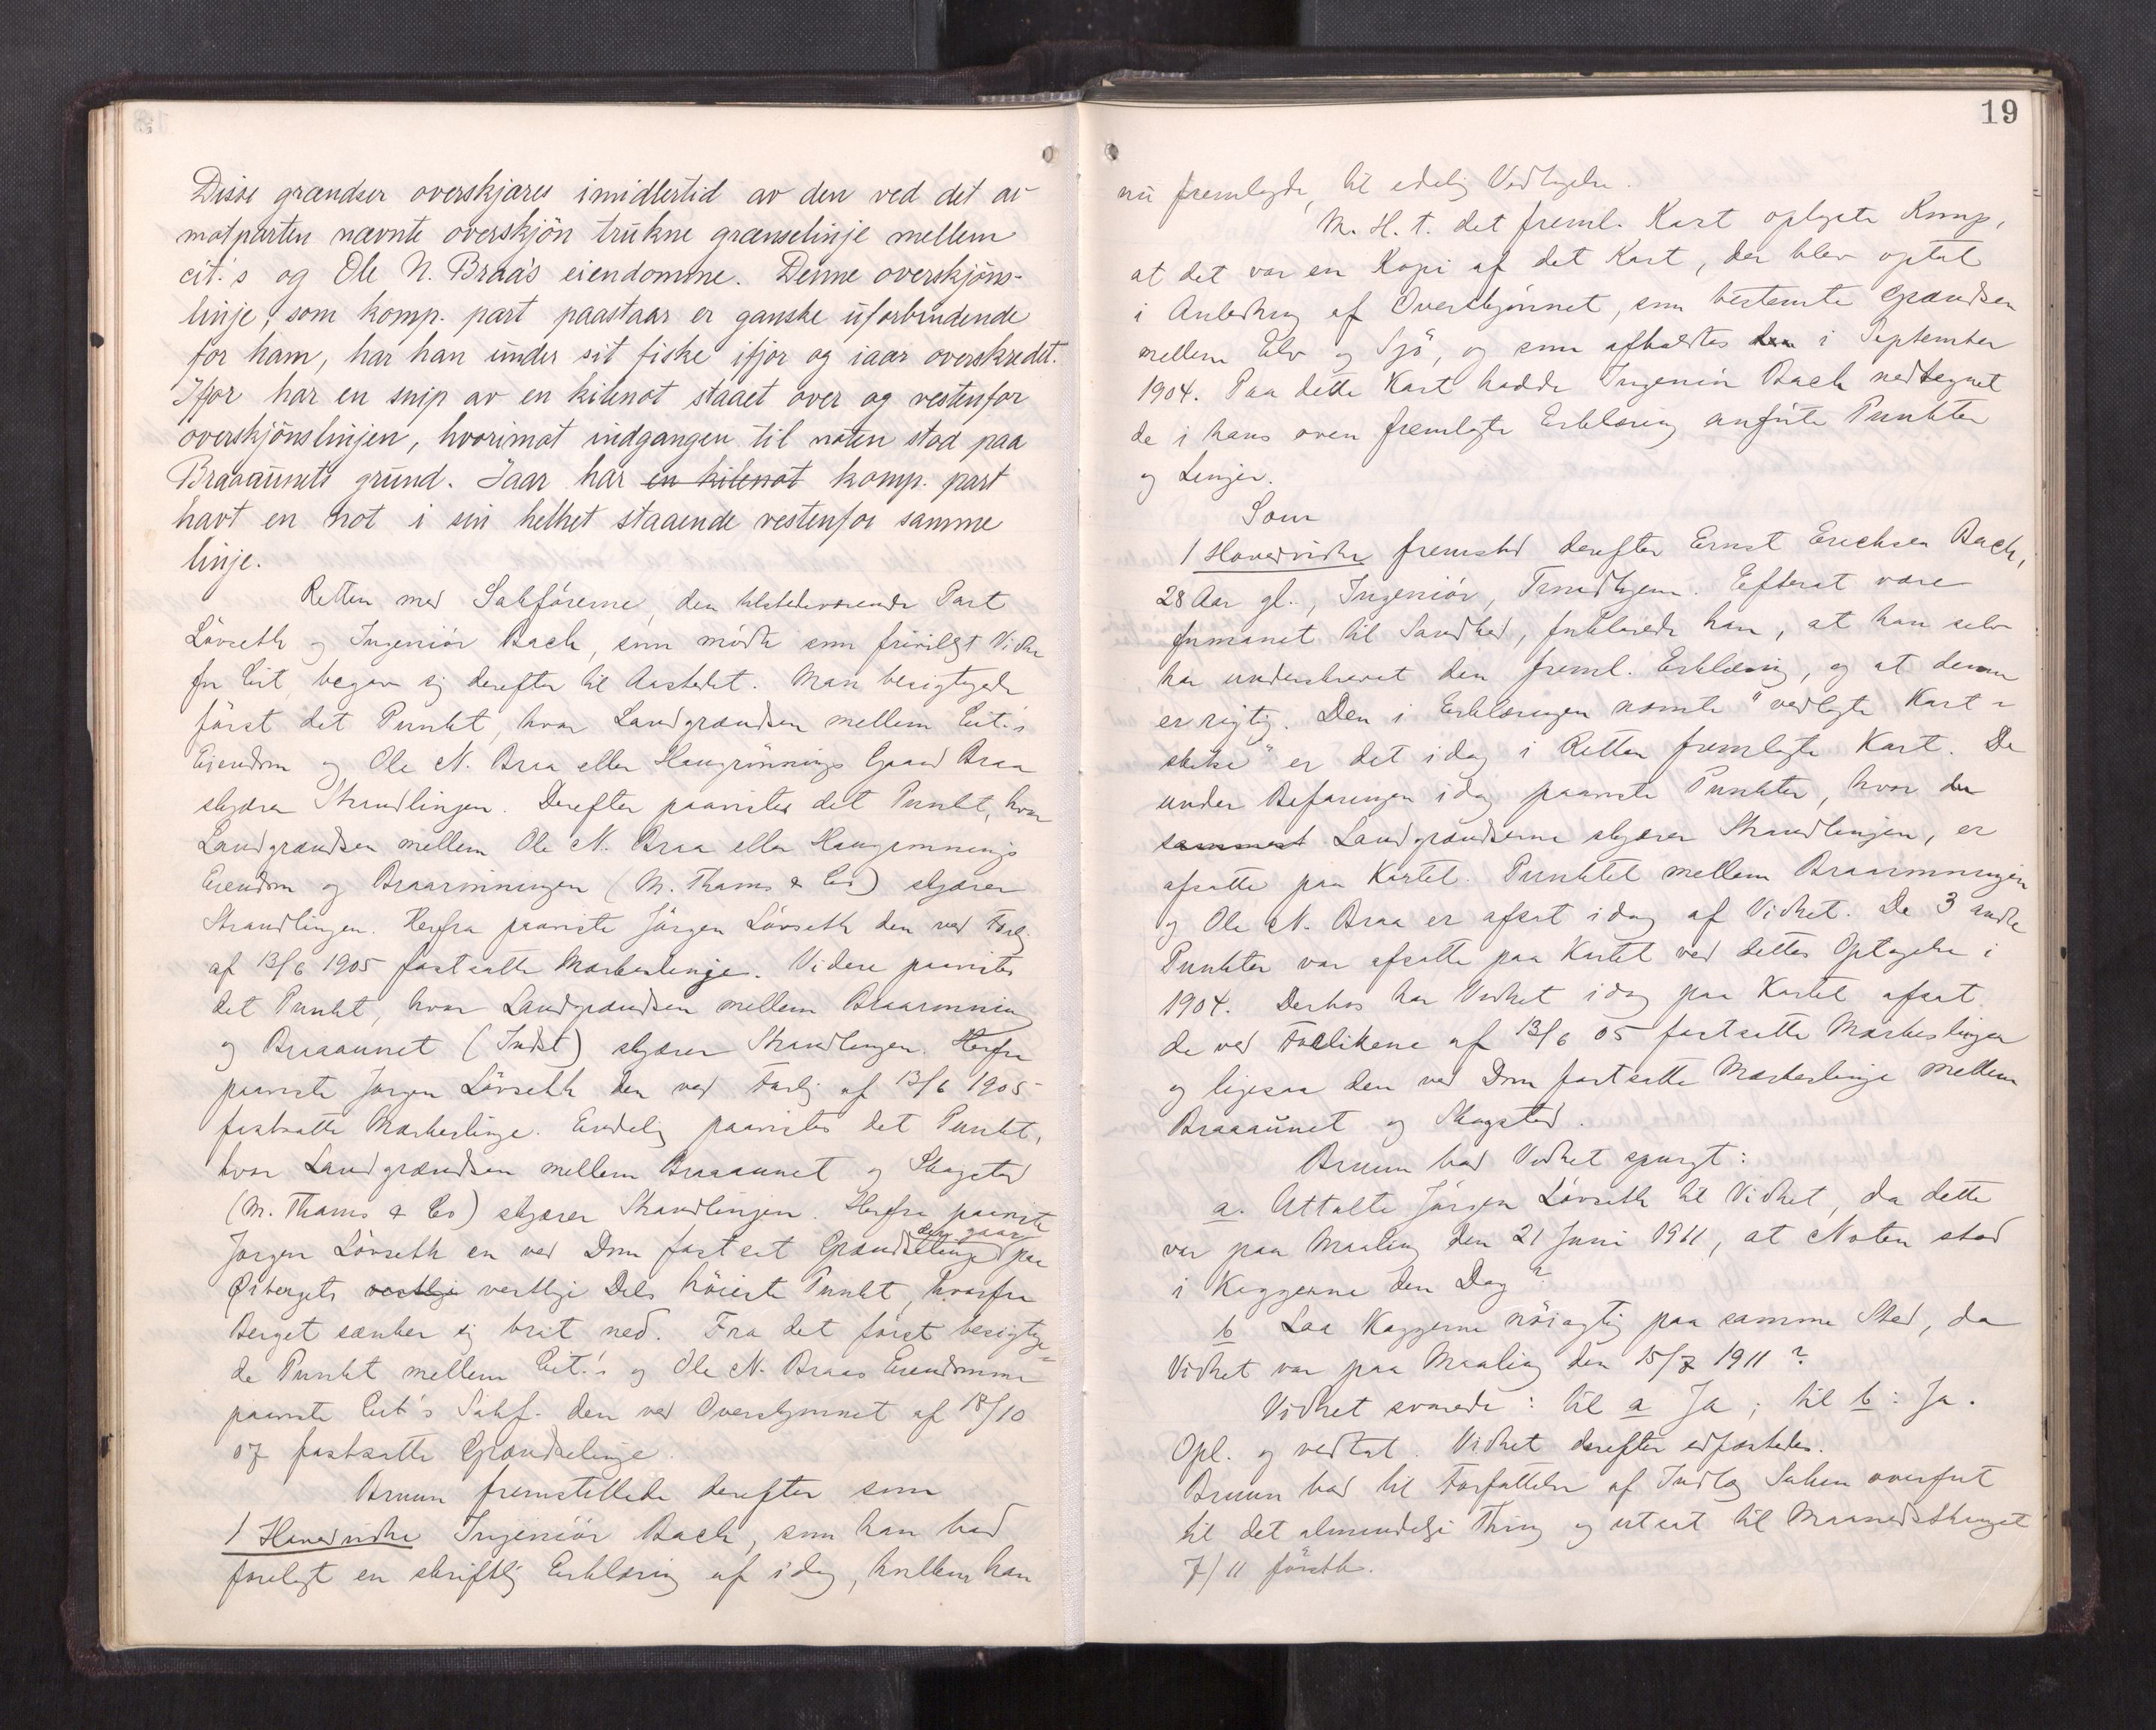 Disse grændser overskjæres imidlertid av den ved det av
motparten nævnte overskjön trukne grænselinje mellem
cit.'s og Ole N. Braa's eiendomme. Denne overskjöns-
linje, som komp. part paastaar er ganske uforbindende
for ham, har han under sit fiske ifjor og iaar overskredet.
Ifjor har en snip av en kilenot staaet over og vestenfor
overskjönslinjen, hvorimot indgangen til noten stod paa
Braaaunets grund. Iaar har en kilenot komp. part
havt en not i sin helhet staaende vestenfor samme
linje.
Retten med Sakförerne, den tilstedeværende Part
Lövseth og Ingeniör Bach, som mödte som frivilligt Vidne
for Cit. begav sig derefter til Aastedet. Man besigtigede
först det Punkt, hvor Landgrændsen mellem Cit.'s
Eiendom og Ole N. Braa eller Haugrönnings Gaard Braa
skjærer Strandlinjen. Derefter paavistes det Punkt, hvor
Landgrændsen mellem Ole N. Braa eller Haugrønnings
Eiendom og Braarønningen (M. Thams & Co) skjærer
Strandlinjen. Herfra paaviste Jörgen Lövseth den ved Forlig
af 13/6 1905 fastsatte Mærkeslinje. Videre paavistes
det Punkt, hvor Landgrændsen mellem Braarønning
og Braaaunet (Indst) skjærer Strandlinjen. Herfra
paaviste Jørgen Lövseth den ved Forlig af 13/6 1905
fastsatte Mærkeslinje. Endelig paavistes det Punkt,
hvor Landgrændsen mellem Braaaunet og Skogstad
(M. Thams & Co) skjærer Strandlinjen. Herfra paaviste
Jørgen Lövseth en ved Dom fastsat Grændselinje der gaar paa
Østbergets vestlige vestlige Dels höieste Punkt, hvorfra
Berget sænker sig brat ned. Fra det först besigtige-
de Punkt mellem Cit.'s og Ole N. Braas Eiendomme
paaviste Cit's Sakf. den ved Overskjønnet af 18/10
07 fastsatte Grændselinje.
Bruun fremstillede derefter som
1 Hovedvidne Ingeniör Bach, som han bad
forelagt en skriftlig Erklæring af idag, hvilken han
19
nu fremlagde, til edelig Vedtagelse.
M. H. t. det freml. Kart oplyste Komp,
at det var en Kopi af det Kart, der blev optat
i Anledning af Overskjönnet, som bestemte Grændsen
mellem Elv og Sjö, og som afholdtes den i September
1904. Paa dette Kart hadde Ingeniör Bach nedtegnet
de i hans oven fremlagte Erklæring anførte Punkter
og Linjer.
Som
1 Hovedvidne fremstod derefter Ernst Erichsen Bach,
28 Aar gl., Ingeniör, Trondhjem. Efterat være
formanet til Sandhed, forklarede han, at han selv
har underskrevet den freml. Erklæring, og at denne
er rigtig. Den i Erklæringen nævnte "vedlagte Kart-
skitse" er det idag i Retten fremlagte Kart. De
under Befaringen idag paaviste Punkter, hvor de
sammest Landgrændserne skjærer Strandlinjen, er
afsatte paa Kartet. Punktet mellem Braarønningen
og Ole N. Braa er afsat idag af Vidnet. De 3 andre
Punkter var afsatte paa Kartet ved dettes Optagelse i
1904. Derhos har Vidnet idag paa Kartet afsat
de ved Forlikene af 13/6 05 fastsatte Mærkeslinjer
og ligesaa den ved Dom fastsatte Mærkeslinje mellem
Braaaunet og Skogstad.
Bruun bad Vidnet spurgt:
a. Uttalte Jørgen Lövseth til Vidnet, da dette
var paa Maaling den 21 Juni 1911, at Noten stod
i Kaggerne den Dag?
b Laa Kaggerne nöiagtig paa samme Sted, da
Vidnet var paa Maaling den 15/7 1911?
Vidnet svarede: til a Ja; til b: Ja.
Opl. og vedtat. Vidnet derefter edfæstedes.
Bruun bad til Forfattelse af Indlæg Saken overført
til det almindelige Thing og utsat til Maanedsthinget
7/11 förstk.